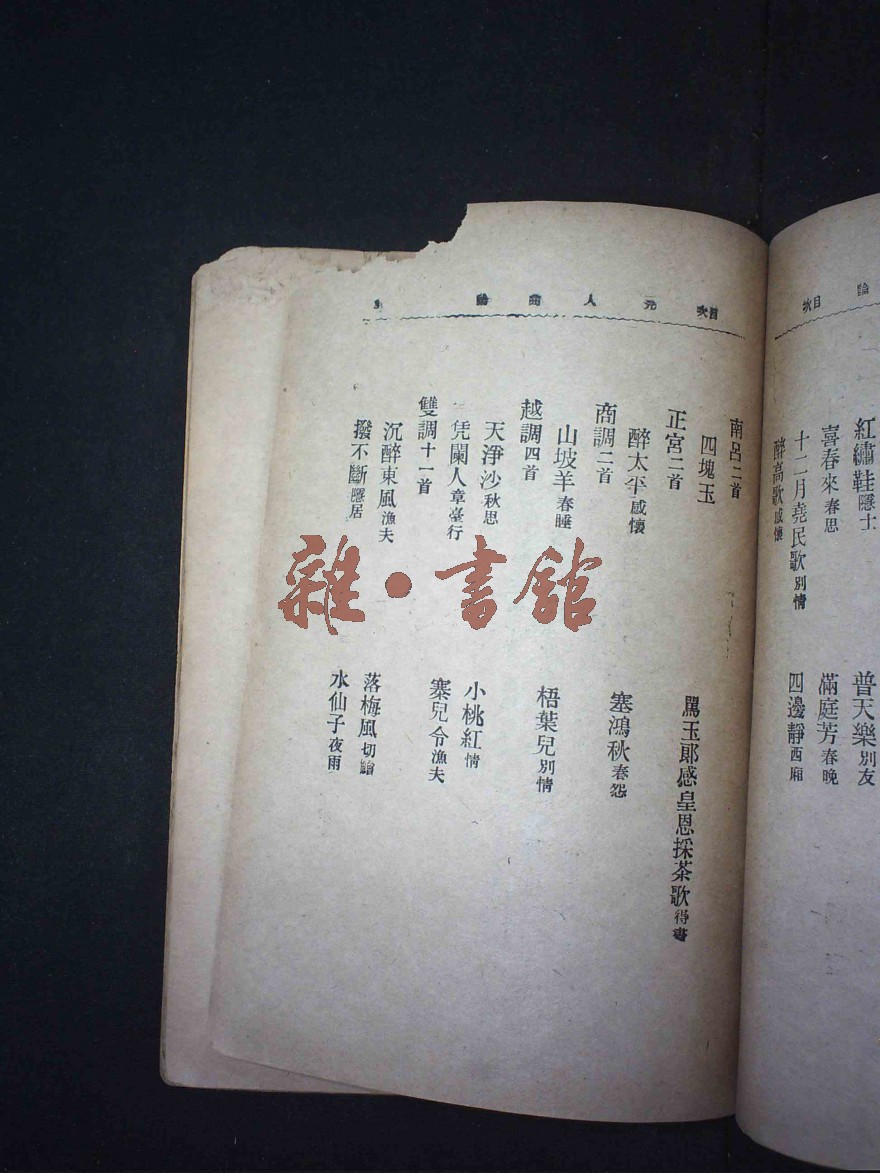 論 目次
紅繡鞋 隱士 普天樂 別友
喜春來 春思 滿庭芳 春晚
十二月堯民歌 別情 四邊靜 西廂
醉高歌 感懷
目次 元人曲論
南呂二首
四塊玉 罵玉郎感皇恩採茶歌 得書
正宮二首
醉太平 感懷 塞鴻秋 春怨
商調二首
山坡羊 春睡 梧葉兒 別情
越調四首
天淨沙 秋思 小桃紅 情
凭闌人 章臺行 寨兒令 漁夫
雙調十一首
沉醉東風 漁夫 落梅風 切鱠
撥不斷 隱居 水仙子 夜雨
雜·書館